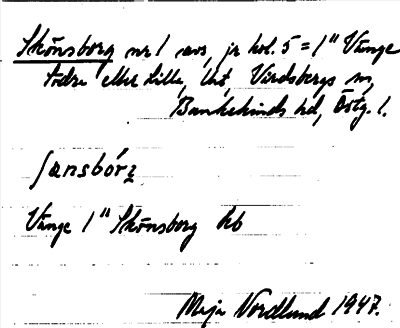 Skönsborg nr 1 avs, jr kol. 5 = 1" Vänge
Södra eller Lilla, Uht, Värdsbergs sn,
Bankekinds hd, Östg. l.
ʃansbórꝫ
Vänge 1" Skönsborg hb
Maja Nordlund 1947.